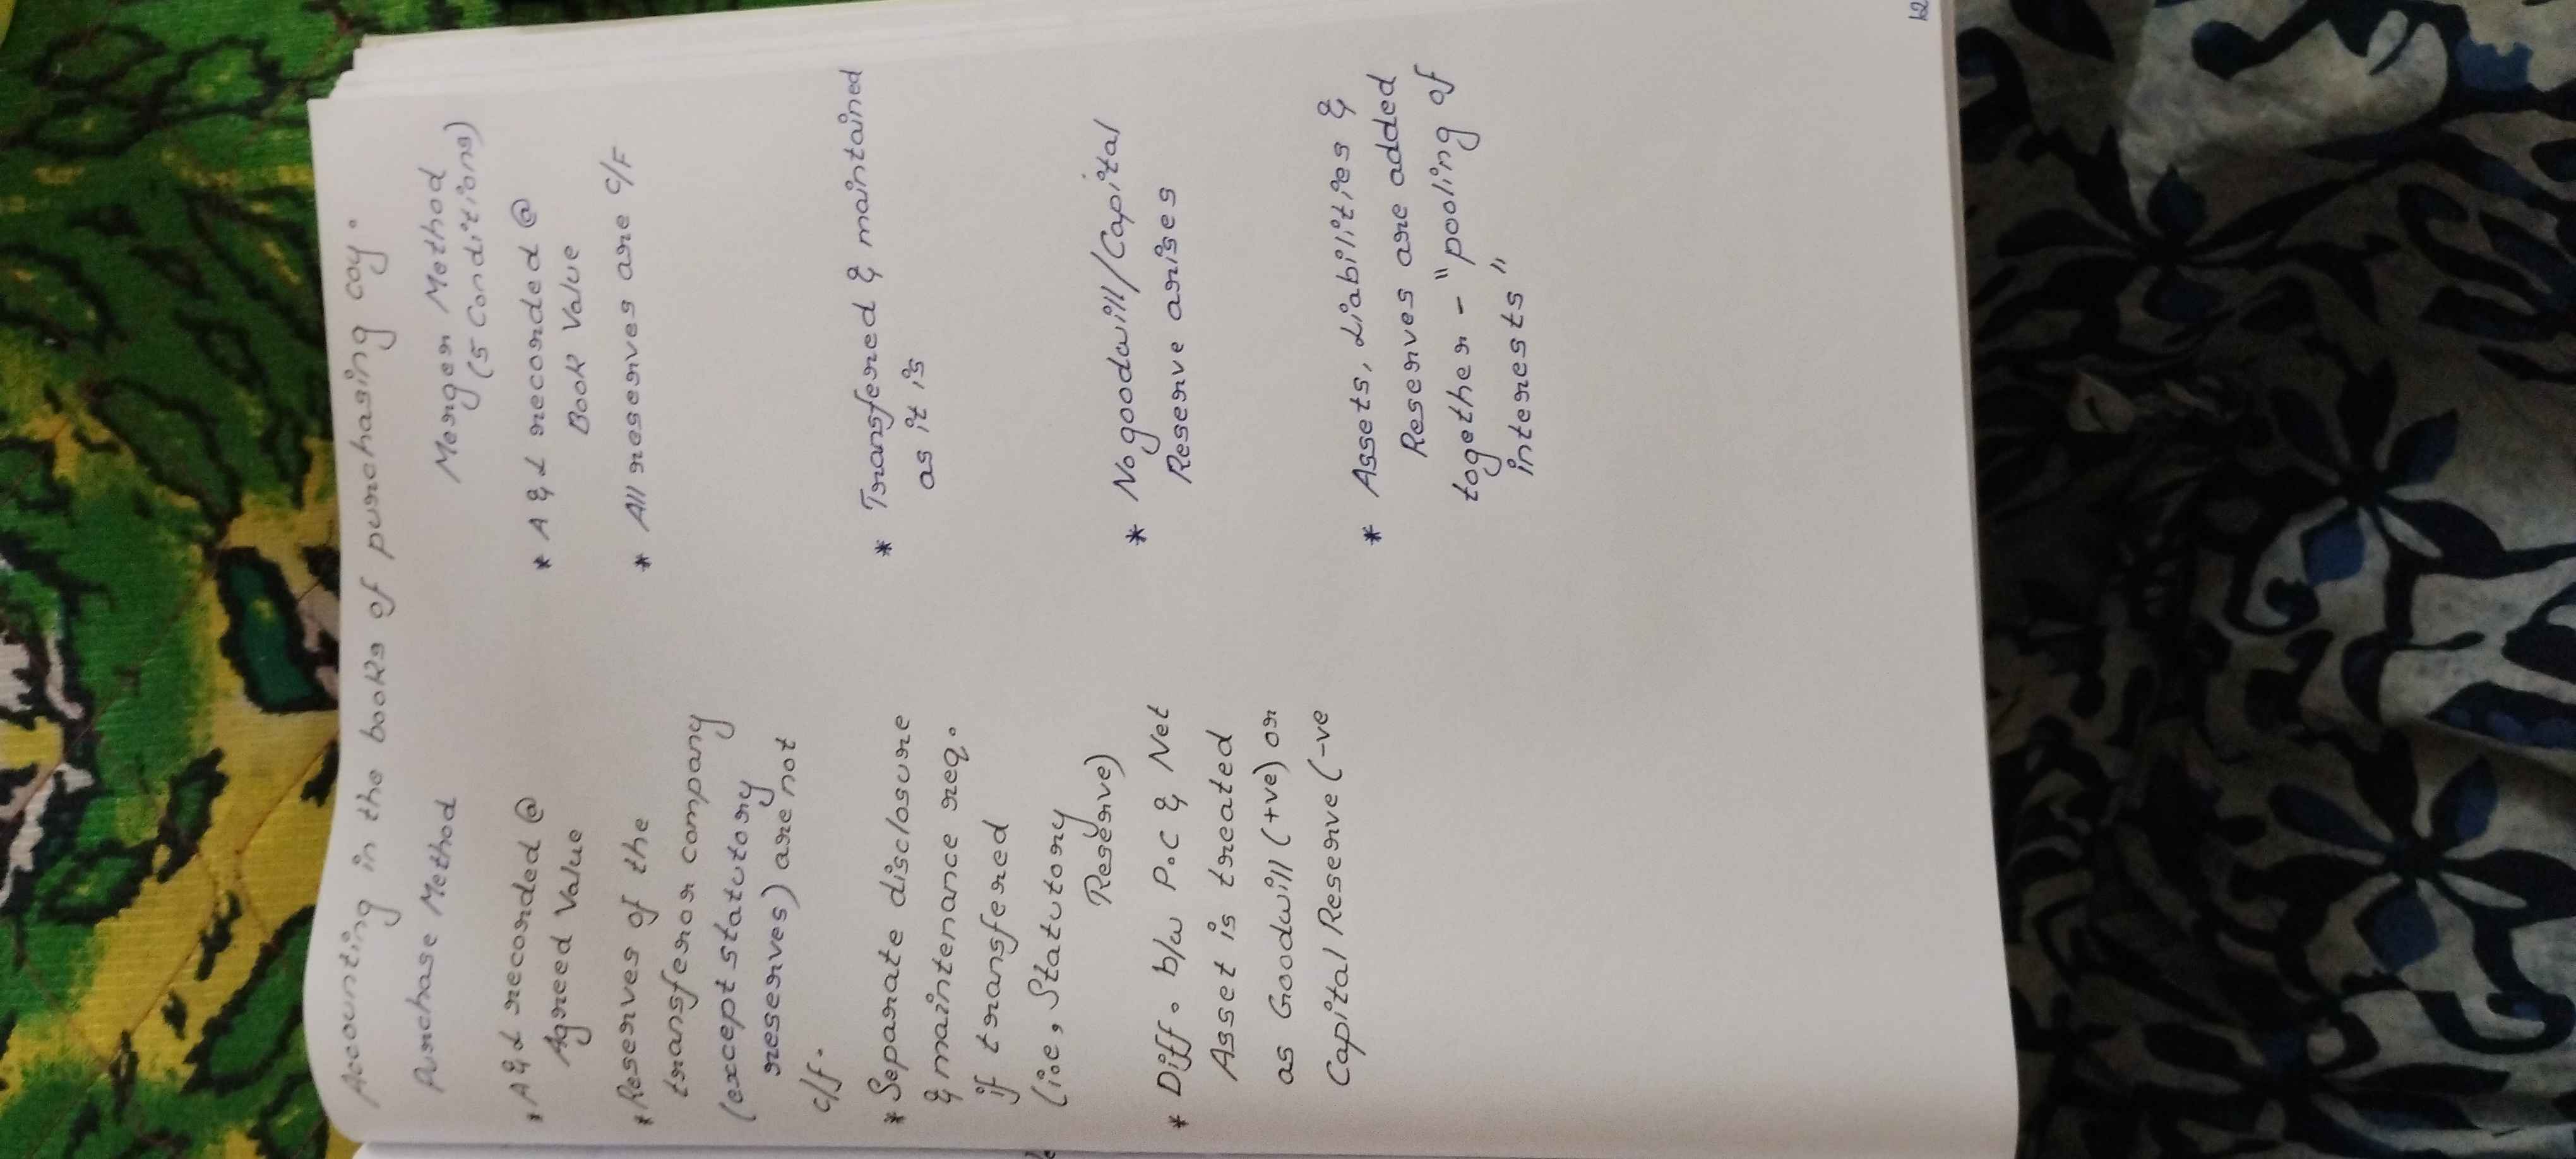 Accounting in the books of purchasing coy.
Purchase Method
* A & L recorded @
Agreed Value
* Reserves of the
transferor company
(except statutory
reserves) are not
c/f.
* Separate disclosure
& maintenance req.
if transfered
(i.e, Statutory
Reserve)
* Diff. b/w P.C & Net
Asset is treated
as Goodwill (+ve) or
Capital Reserve (-ve
Merger Method
(5 Conditions)
* A & L recorded @
Book Value
* All reserves are c/F
* Transfered & maintained
as it is
* No goodwill/Capital
Reserve arises
* Assets, Liabilities &
Reserves are added
together - "pooling of
interests"
12